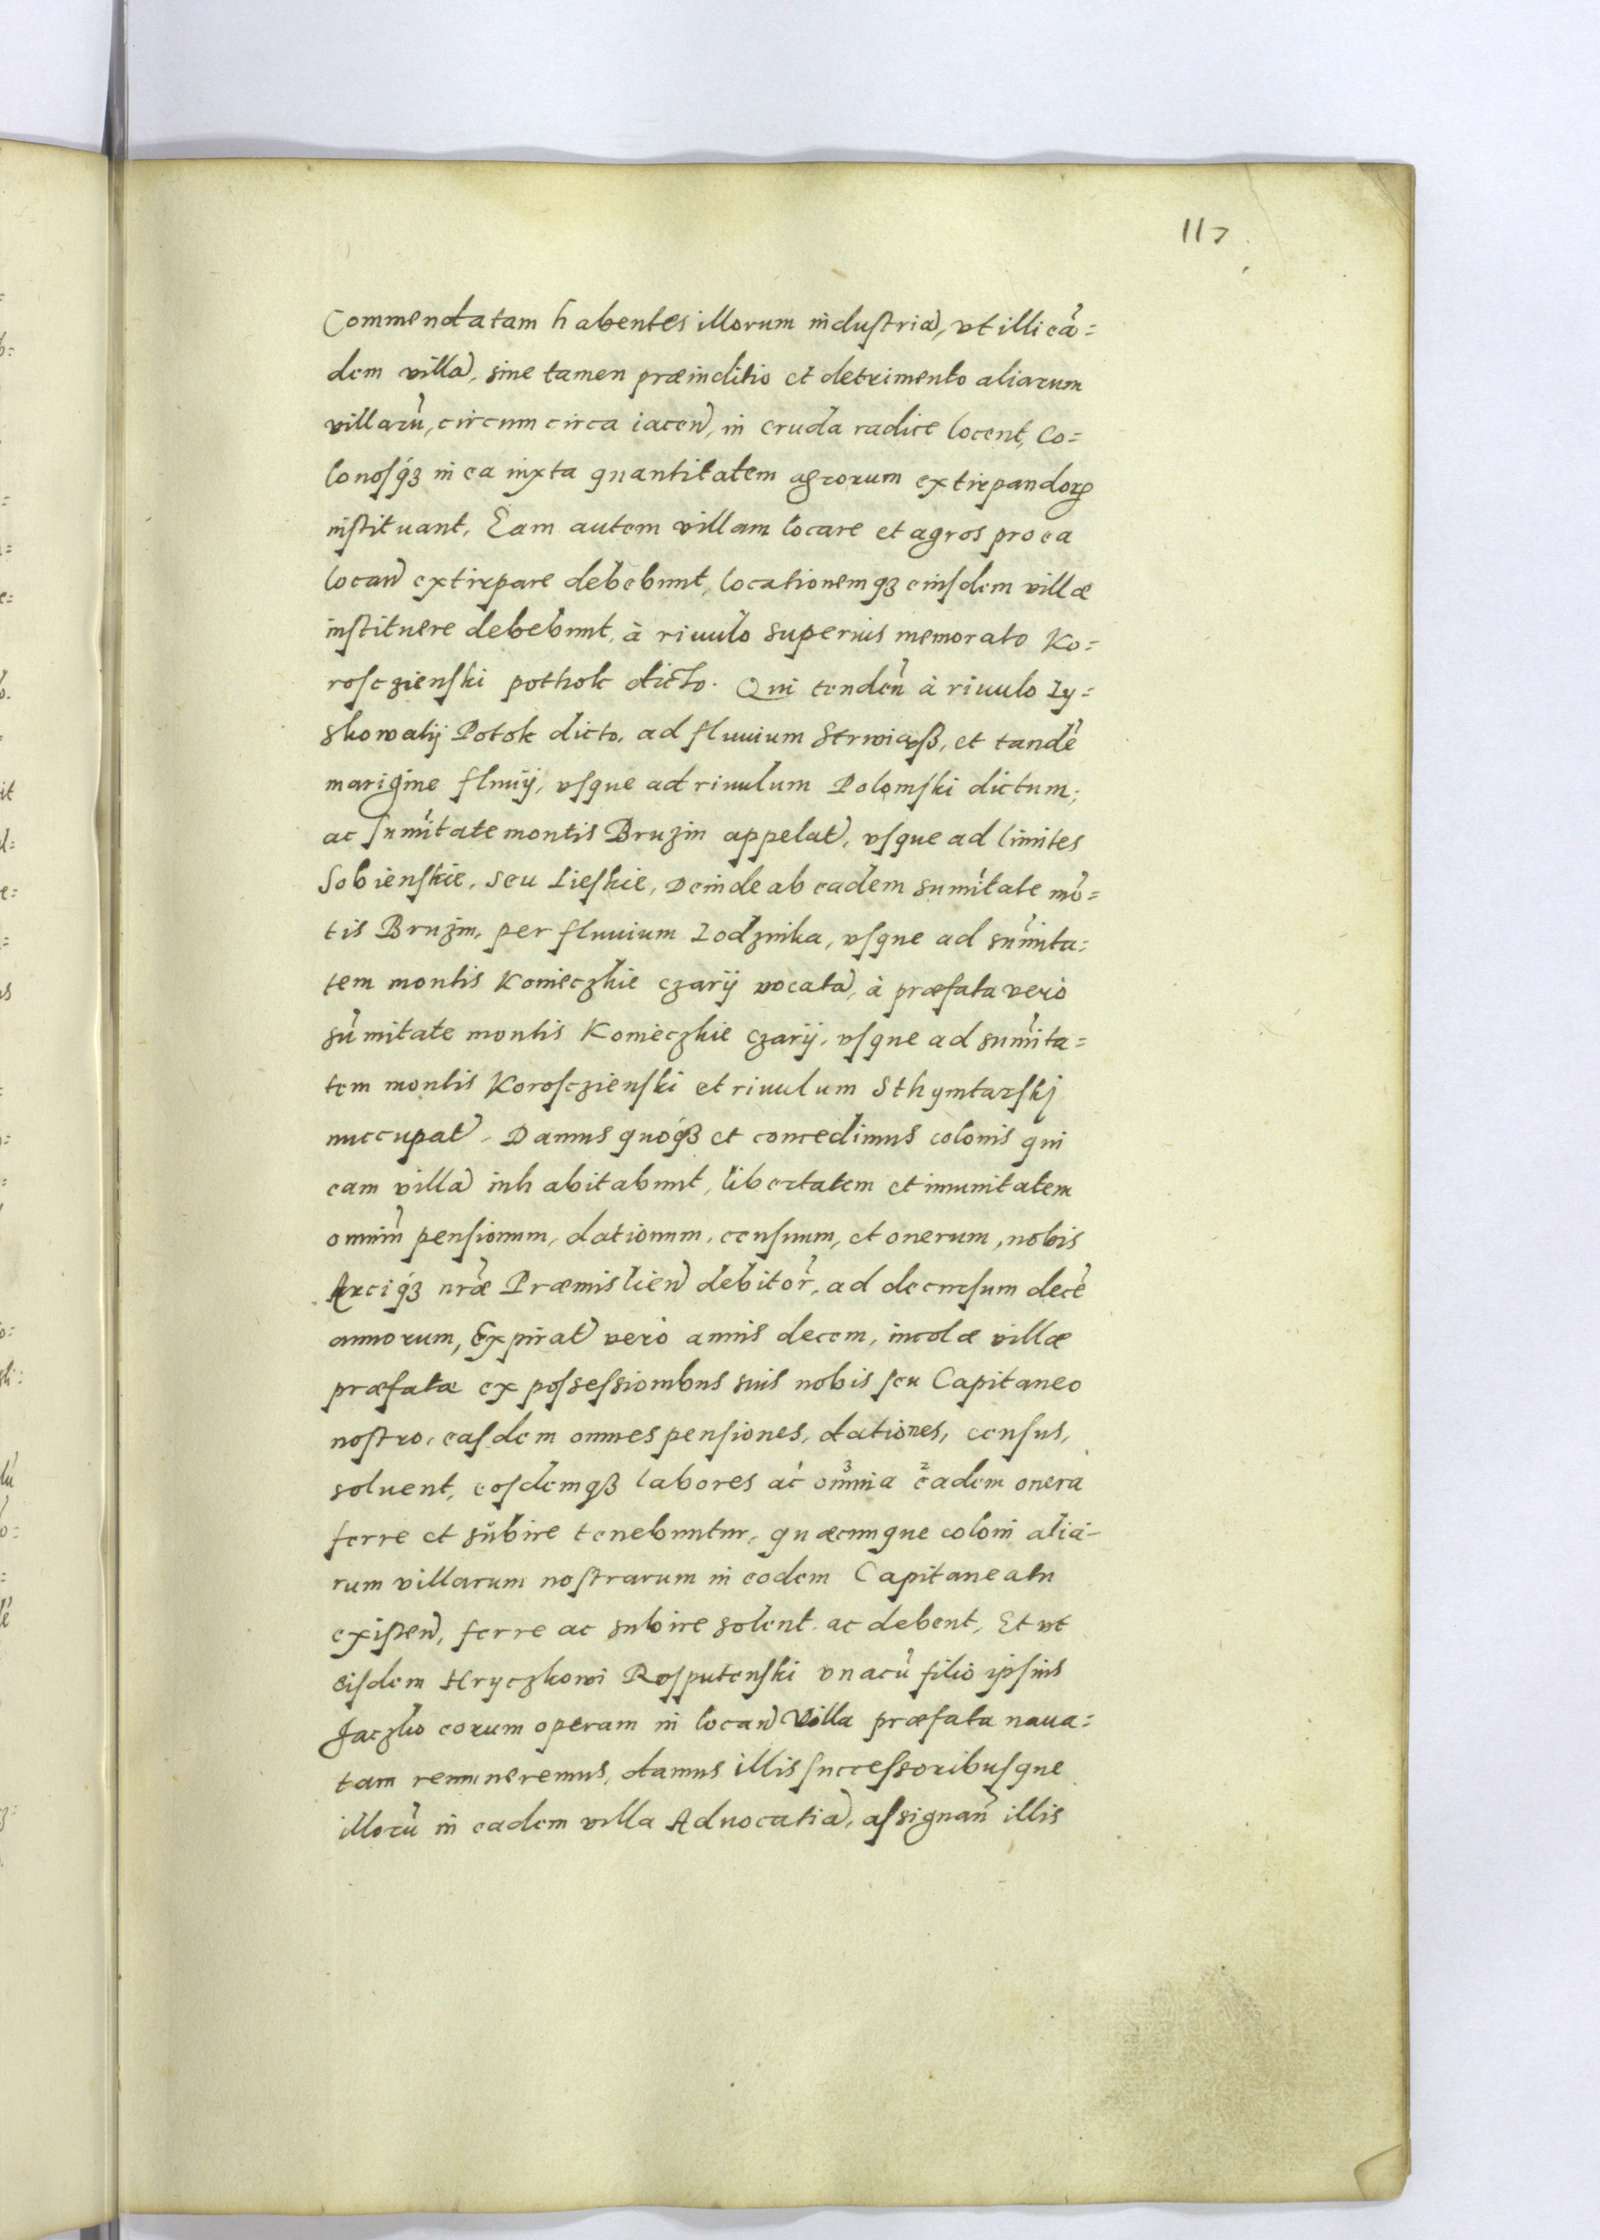 117
Commendatam habentes illorum industriã, vt illi eã=
dem villã, sine tamen præiuditio et detrimento aliarum
villarũ, circum circa iaceñ, in cruda radice locent, Co=
lonosq́ꝫ in ea iuxta quantitatem agrorum extirpandorꝝ
instituant, Eam autem villam locare et agros pro ea
locañ extirpare debebunt, locationemqꝫ eiusdem villæ
instituere debebunt, à riuulo superius memorato Ko=
rosczienski pothok dicto. Qui tendeñ à riuulo Ly=
skowatij Potok dicto, ad fluuium Strwiąß, et tandẽ
marigine fluuij, vsque ad riuulum Polomski dictum;
ac sum̃itate montis Bruzin appelat̃, vsque ad limites
Sobienskie, seu Lieskie, Deinde ab eadem sumĩtate mõ=
tis Bruzin, per fluuium Lodzinka, vsque ad sum̃ita=
tem montis Konieczkie czarij vocatã, à præfata verò
sũmitate montis Konieczkie Czarij, vsque ad sum̃ita=
tem montis Korosczienski et riuulum Sthymtarskj
nuccupat̃. Damus quoq́ꝫ et concedimus colonis qui
eam villã inhabitabunt, libertatem et immunitatem
omniũ pensionum, dationum, censuum, et onerum, nobis
Arciq́ꝫ nr̃æ Præmislieñ debitor̃, ad decursum decẽ
annorum, Expirat̃ verò annis decem, incolæ villæ
præfatæ ex possessionibus suis nobis seu Capitaneo
nostro, easdem omnes pensiones, dationes, census,
soluent, eosdemqꝫ labores ac omnia³ eadem² onera
ferre et sŭbire tenebuntur, quæcunque coloni alia-
rum villarum nostrarum in eodem Capitaneatu
existeñ, ferre ac subire solent ac debent, Et vt
eisdem Hryczkowi Rosputenski vnacũ filio ipsius
Jaczko eorum operam in locañ Villa præfata naua=
tam remuneremus, damus illis successoribusque
illorũ in eadem villa Aduocatiã, assignañ illis